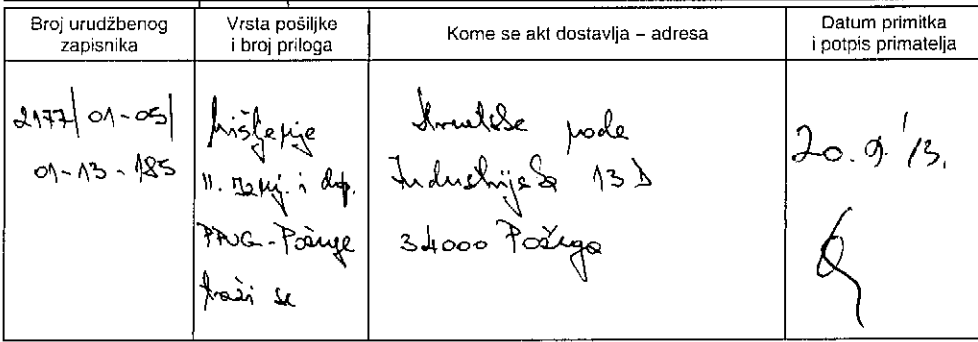 Broj urudžbenog
zapisnika
Vrsta pošiljke
i broj priloga
Kome se akt dostavlja – adresa
Datum primitka
i potpis primatelja
2177/01-05/
01-13-185
mišljenje
II. izmj. i dop.
PPUG-Požege
traži se
Hrvatske vode
Industrijska 13 D
34000 Požega
20. 9. '13.